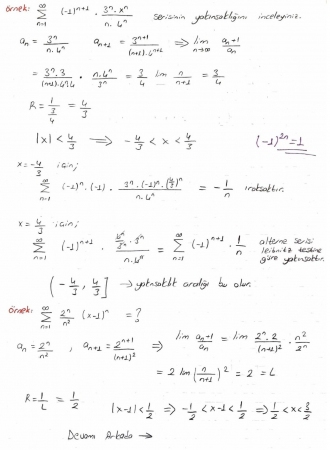 örnek: ∑_{n=1}^{∞} (-1)^{n+1} · 3^n·x^n / n·4^n serisinin yakınsaklığını inceleyiniz.
a_n = 3^n / n·4^n a_{n+1} = 3^{n+1} / (n+1)·4^{n+1} ⇒ lim_{n→∞} a_{n+1} / a_n
= 3^n·3 / (n+1)·4^n·4 · n·4^n / 3^n = 3/4 lim n/n+1 = 3/4
R = 1 / (3/4) = 4/3
|x| < 4/3 ⟹ -4/3 < x < 4/3 (-1)^{2n} = 1
x = -4/3 için;
∑_{n=1}^{∞} (-1)^n·(-1) · 3^n·(-1)^n·(4/3)^n / n·4^n = -1/n ıraksaktır.
x = 4/3 için;
∑_{n=1}^{∞} (-1)^{n+1} · 4^n/3^n · 3^n / n·4^n = ∑_{n=1}^{∞} (-1)^{n+1} · 1/n alterne serisi leibnitz testine göre yakınsaktır.
(-4/3, 4/3] → yakınsaklık aralığı bu olur.
örnek: ∑_{n=1}^{∞} 2^n/n^2 (x-1)^n = ?
a_n = 2^n/n^2 , a_{n+1} = 2^{n+1}/(n+1)^2 ⇒ lim a_{n+1}/a_n = lim 2^n·2/(n+1)^2 · n^2/2^n
= 2 lim (n/n+1)^2 = 2 = L
R = 1/L = 1/2 |x-1| < 1/2 ⇒ -1/2 < x-1 < 1/2 ⇒ 1/2 < x < 3/2
Devamı Arkada →